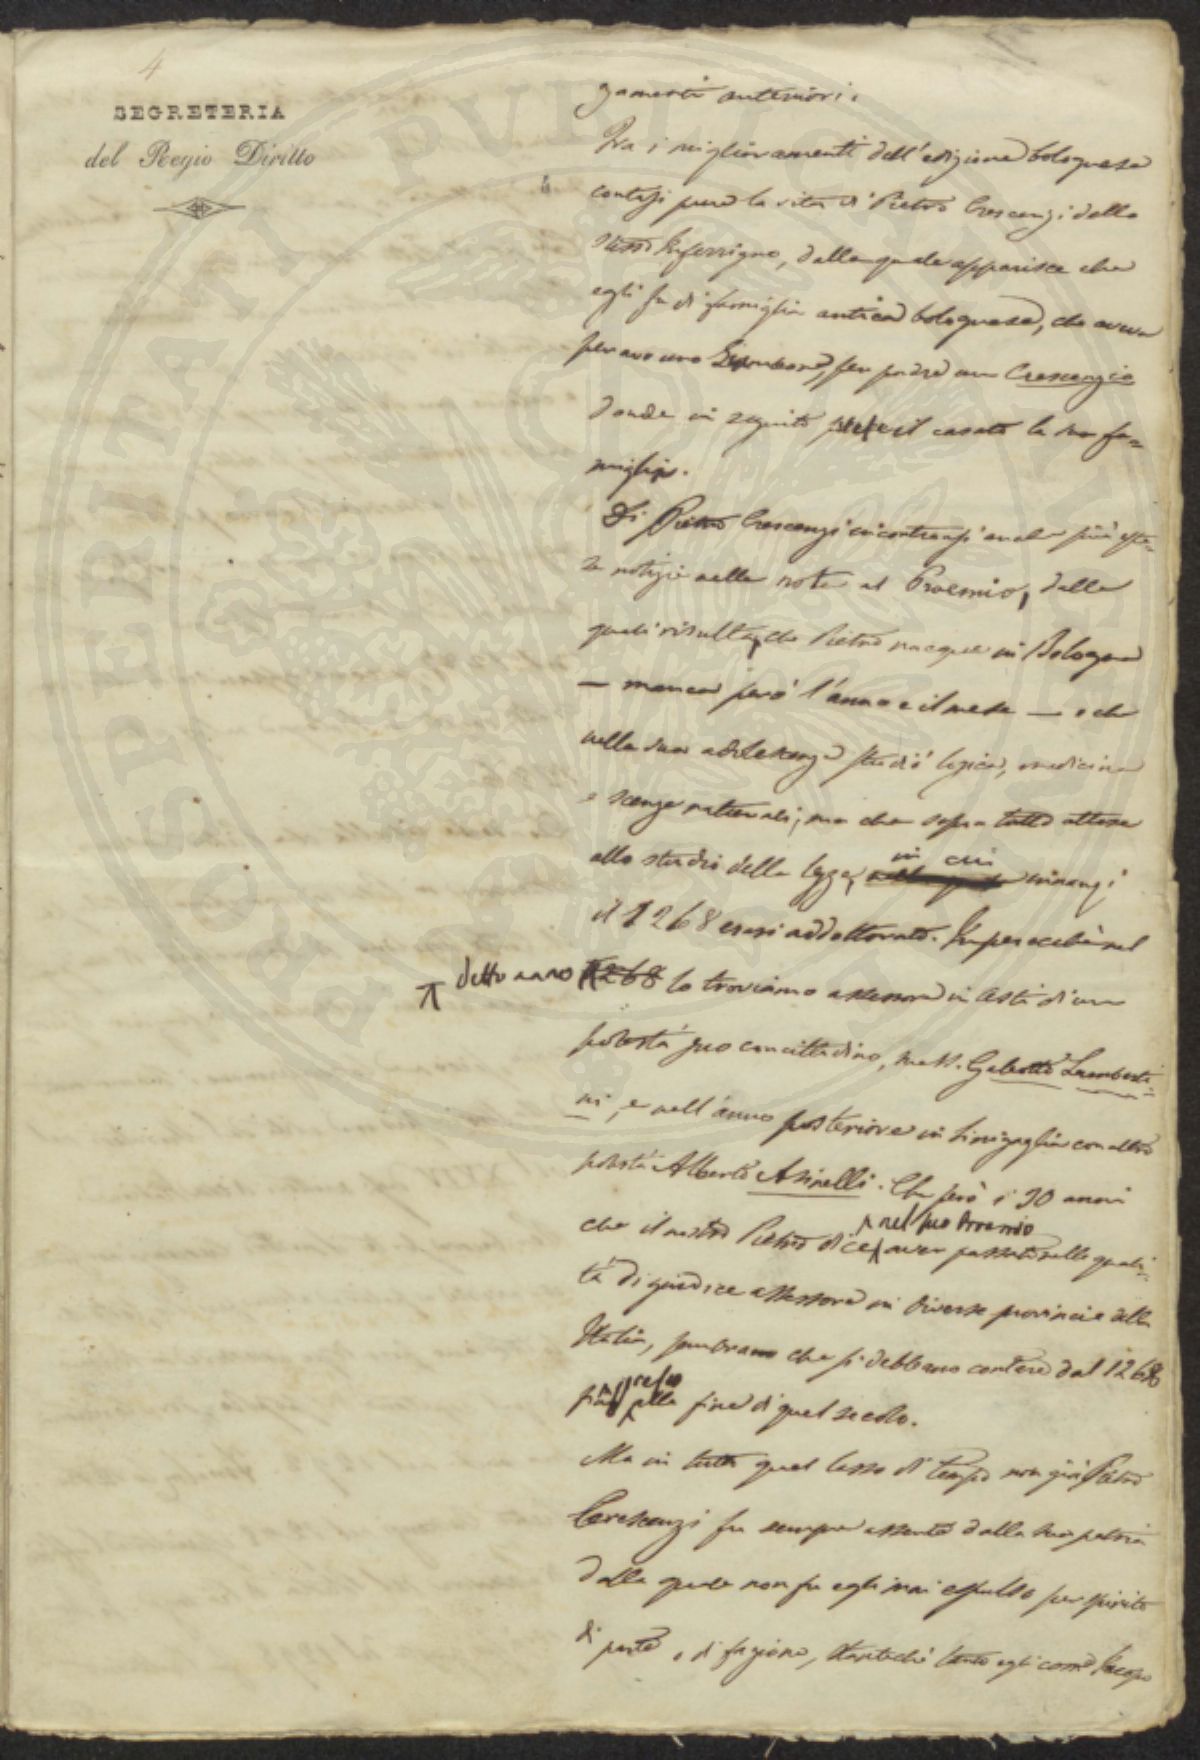 4
SEGRETERIA
del Regio Diritto
gamenti anteriori.
Fra i miglioramenti dell'edizione bolognese
contasi pure la vita di Pietro Crescenzi dello
stesso Inferrigno, dalla quale apparisce che
egli fu di famiglia antica bolognese, che aveva
per avo uno per padre un Crescenzio
donde in seguito prese il casato la sua fa=
miglia.
Di Pietro Crescenzi incontransi anche più este=
se notizie nelle note al Proemio, dalle
quali risulta, che Pietro nacque in Bologna
— manca però l'anno e il mese — e che
nella sua adolescenza studiò logica, medicina
e scenze naturali; ma che sopra tutto attese
allo studio della legge, in cui innanzi
il 1268 erasi addottorato. Imperocchè nel
detto anno 1268 lo troviamo assessore in Asti di un
potestà suo concittadino, mess. Galeotto Lamberti=
ni, e nell'anno posteriore in Sinigaglia con altro
potestà Alberto Asinelli. Che però i 30 anni
che il nostro Pietro dice nel suo Proemio aver passato nella quali=
tà di giudice assessore in diverse provincie della
Italia, sembrano che si debbano contare dal 1268
fin presso alla fine di quel secolo.
Ma in tutto quel lasso di tempo non già Pietro
Crescenzi fu sempre assente dalla sua patria
dalla quale non fu egli mai espulso per spirito
di parte, o di fazione, stantechè tanto egli come Jacopo